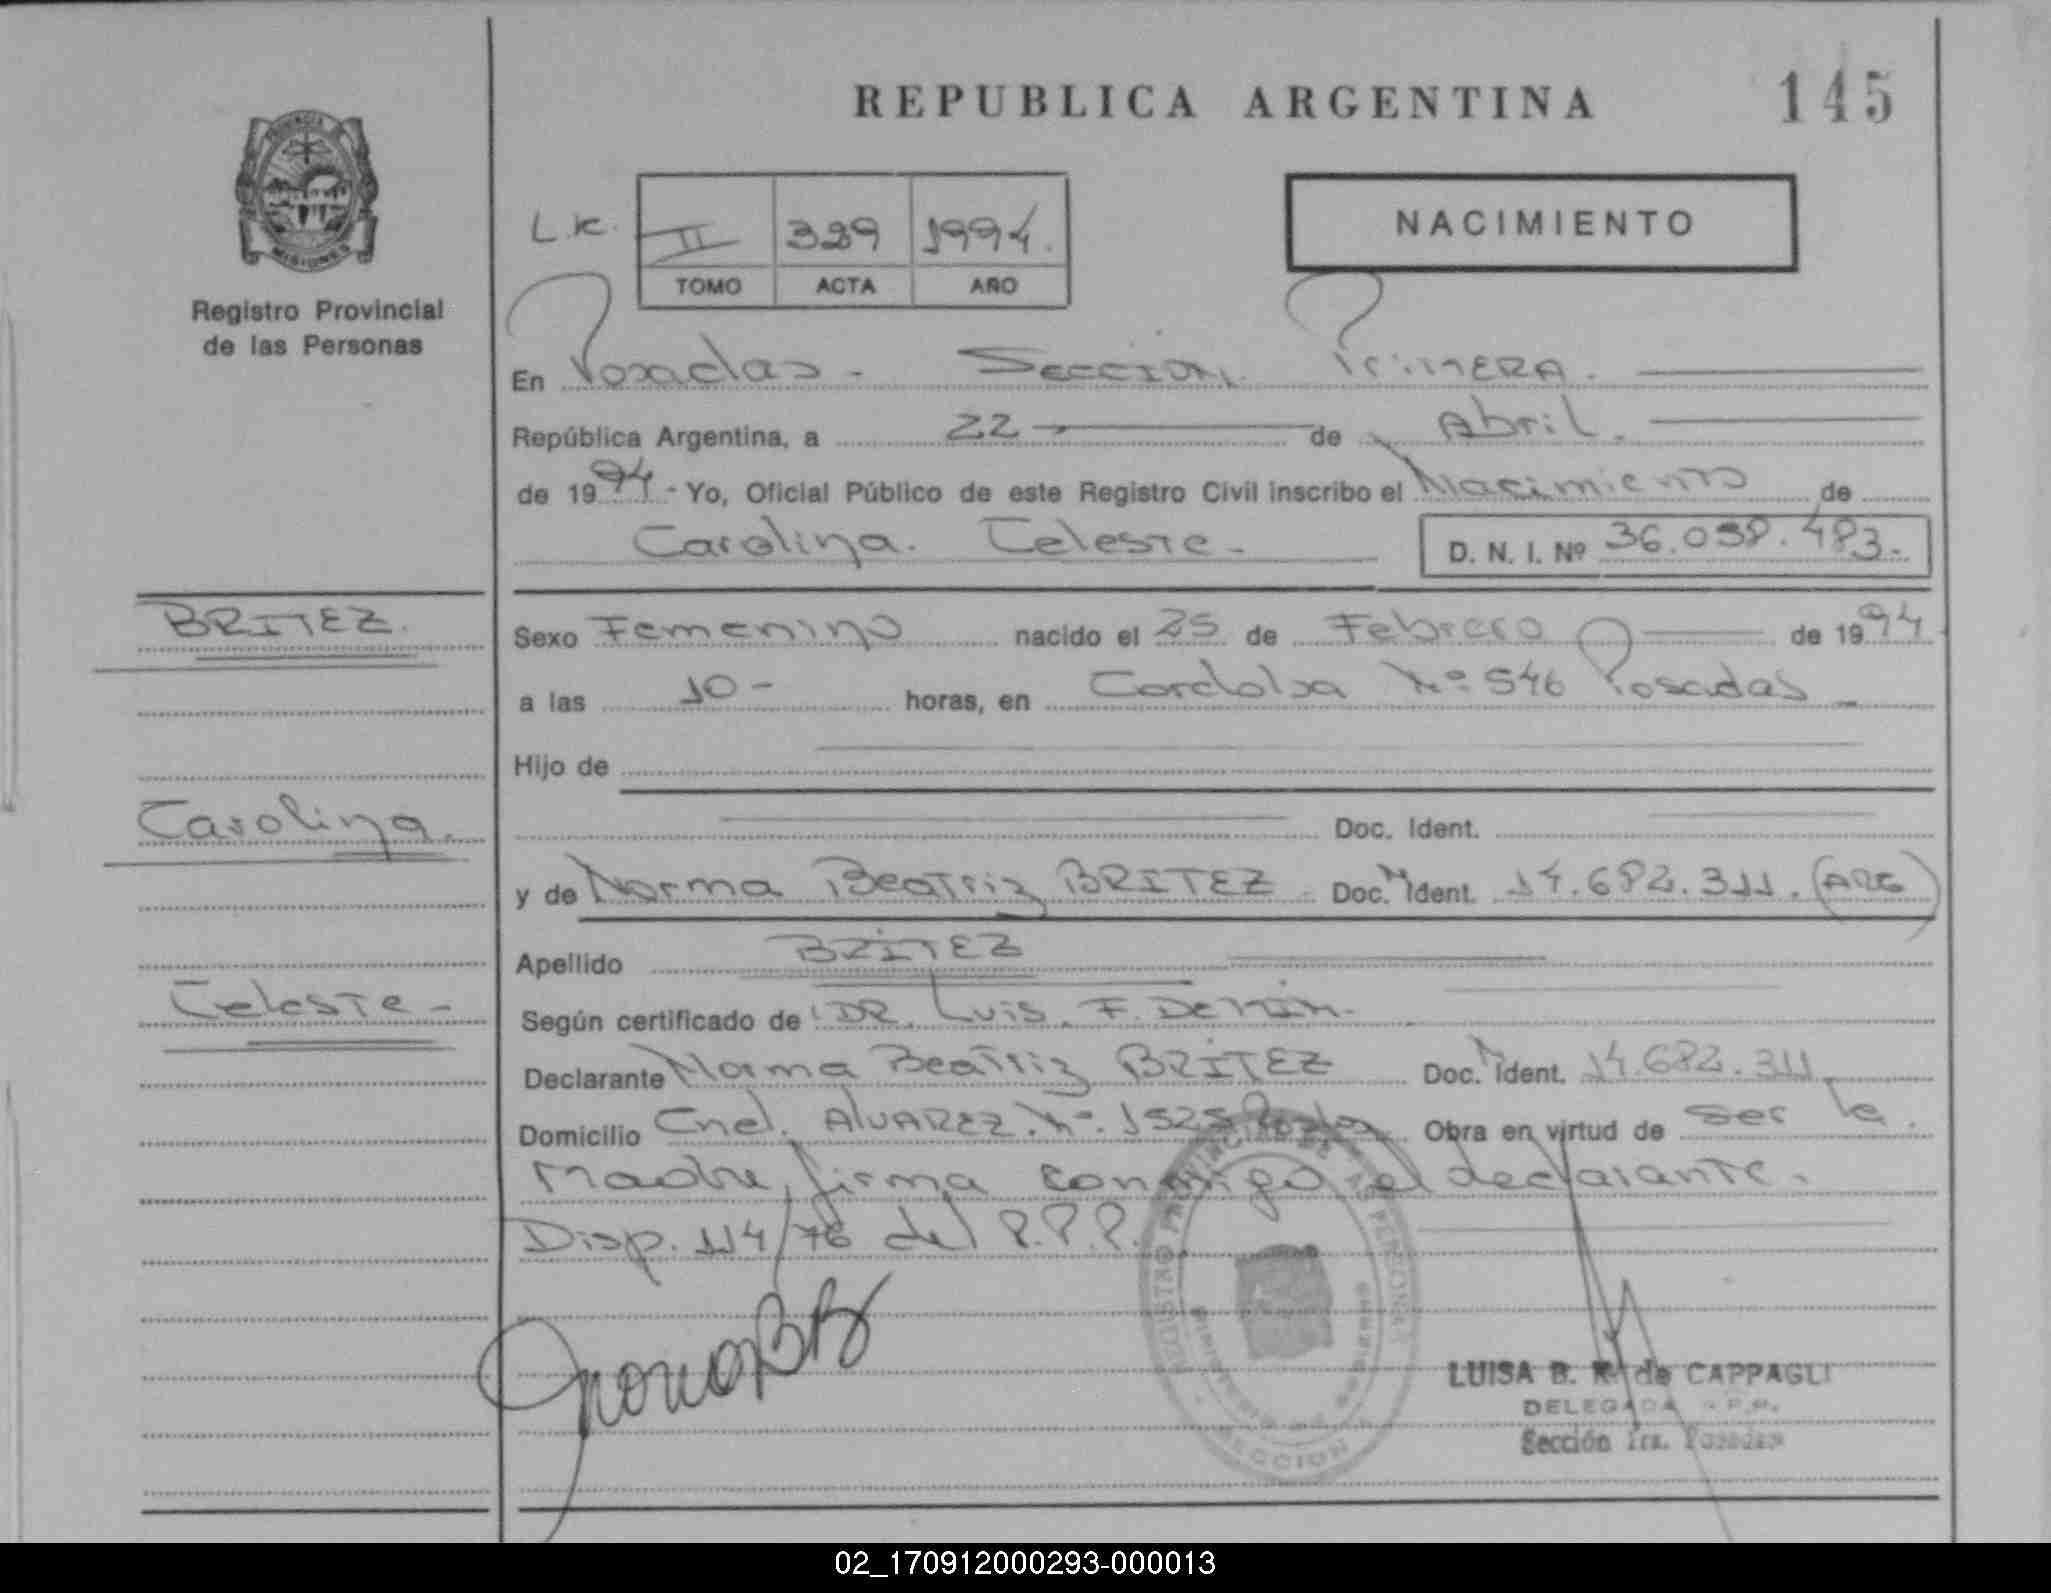 REPUBLICA ARGENTINA 145
PROVINCIA DE
MISIONES
Registro Provincial
de las Personas
L.K. II 329 1994.
TOMO ACTA AÑO
NACIMIENTO
En Posadas - Sección Primera.
República Argentina, a 22 de Abril.
de 1994 - Yo, Oficial Público de este Registro Civil inscribo el Nacimiento de
Carolina. Celeste -
D. N. I. Nº 36.098.483.-
BRITEZ.
Carolina.
Celeste -
Sexo Femenino nacido el 25 de Febrero de 1994
a las 10 - horas, en Cordoba Nº 546 Posadas -
Hijo de
Doc. Ident.
y de Norma Beatriz BRITEZ - Doc. N Ident. 14.682.311. (ARG)
Apellido BRITEZ
Según certificado de DR. Luis. F.
Declarante Norma Beatriz BRITEZ Doc. N Ident. 14.682.311
Domicilio Cnel. ALVAREZ. Nº. 1525 Obra en virtud de ser la
Madre, firma conmigo el declarante.
Disp. 114/76 del R.P.P.
REGISTRO PROVINCIAL DE LAS PERSONAS
SECCION
LUISA B. R. de CAPPAGLI
DELEGADA R.P.P.
Sección 1ra. Posadas
02_170912000293-000013